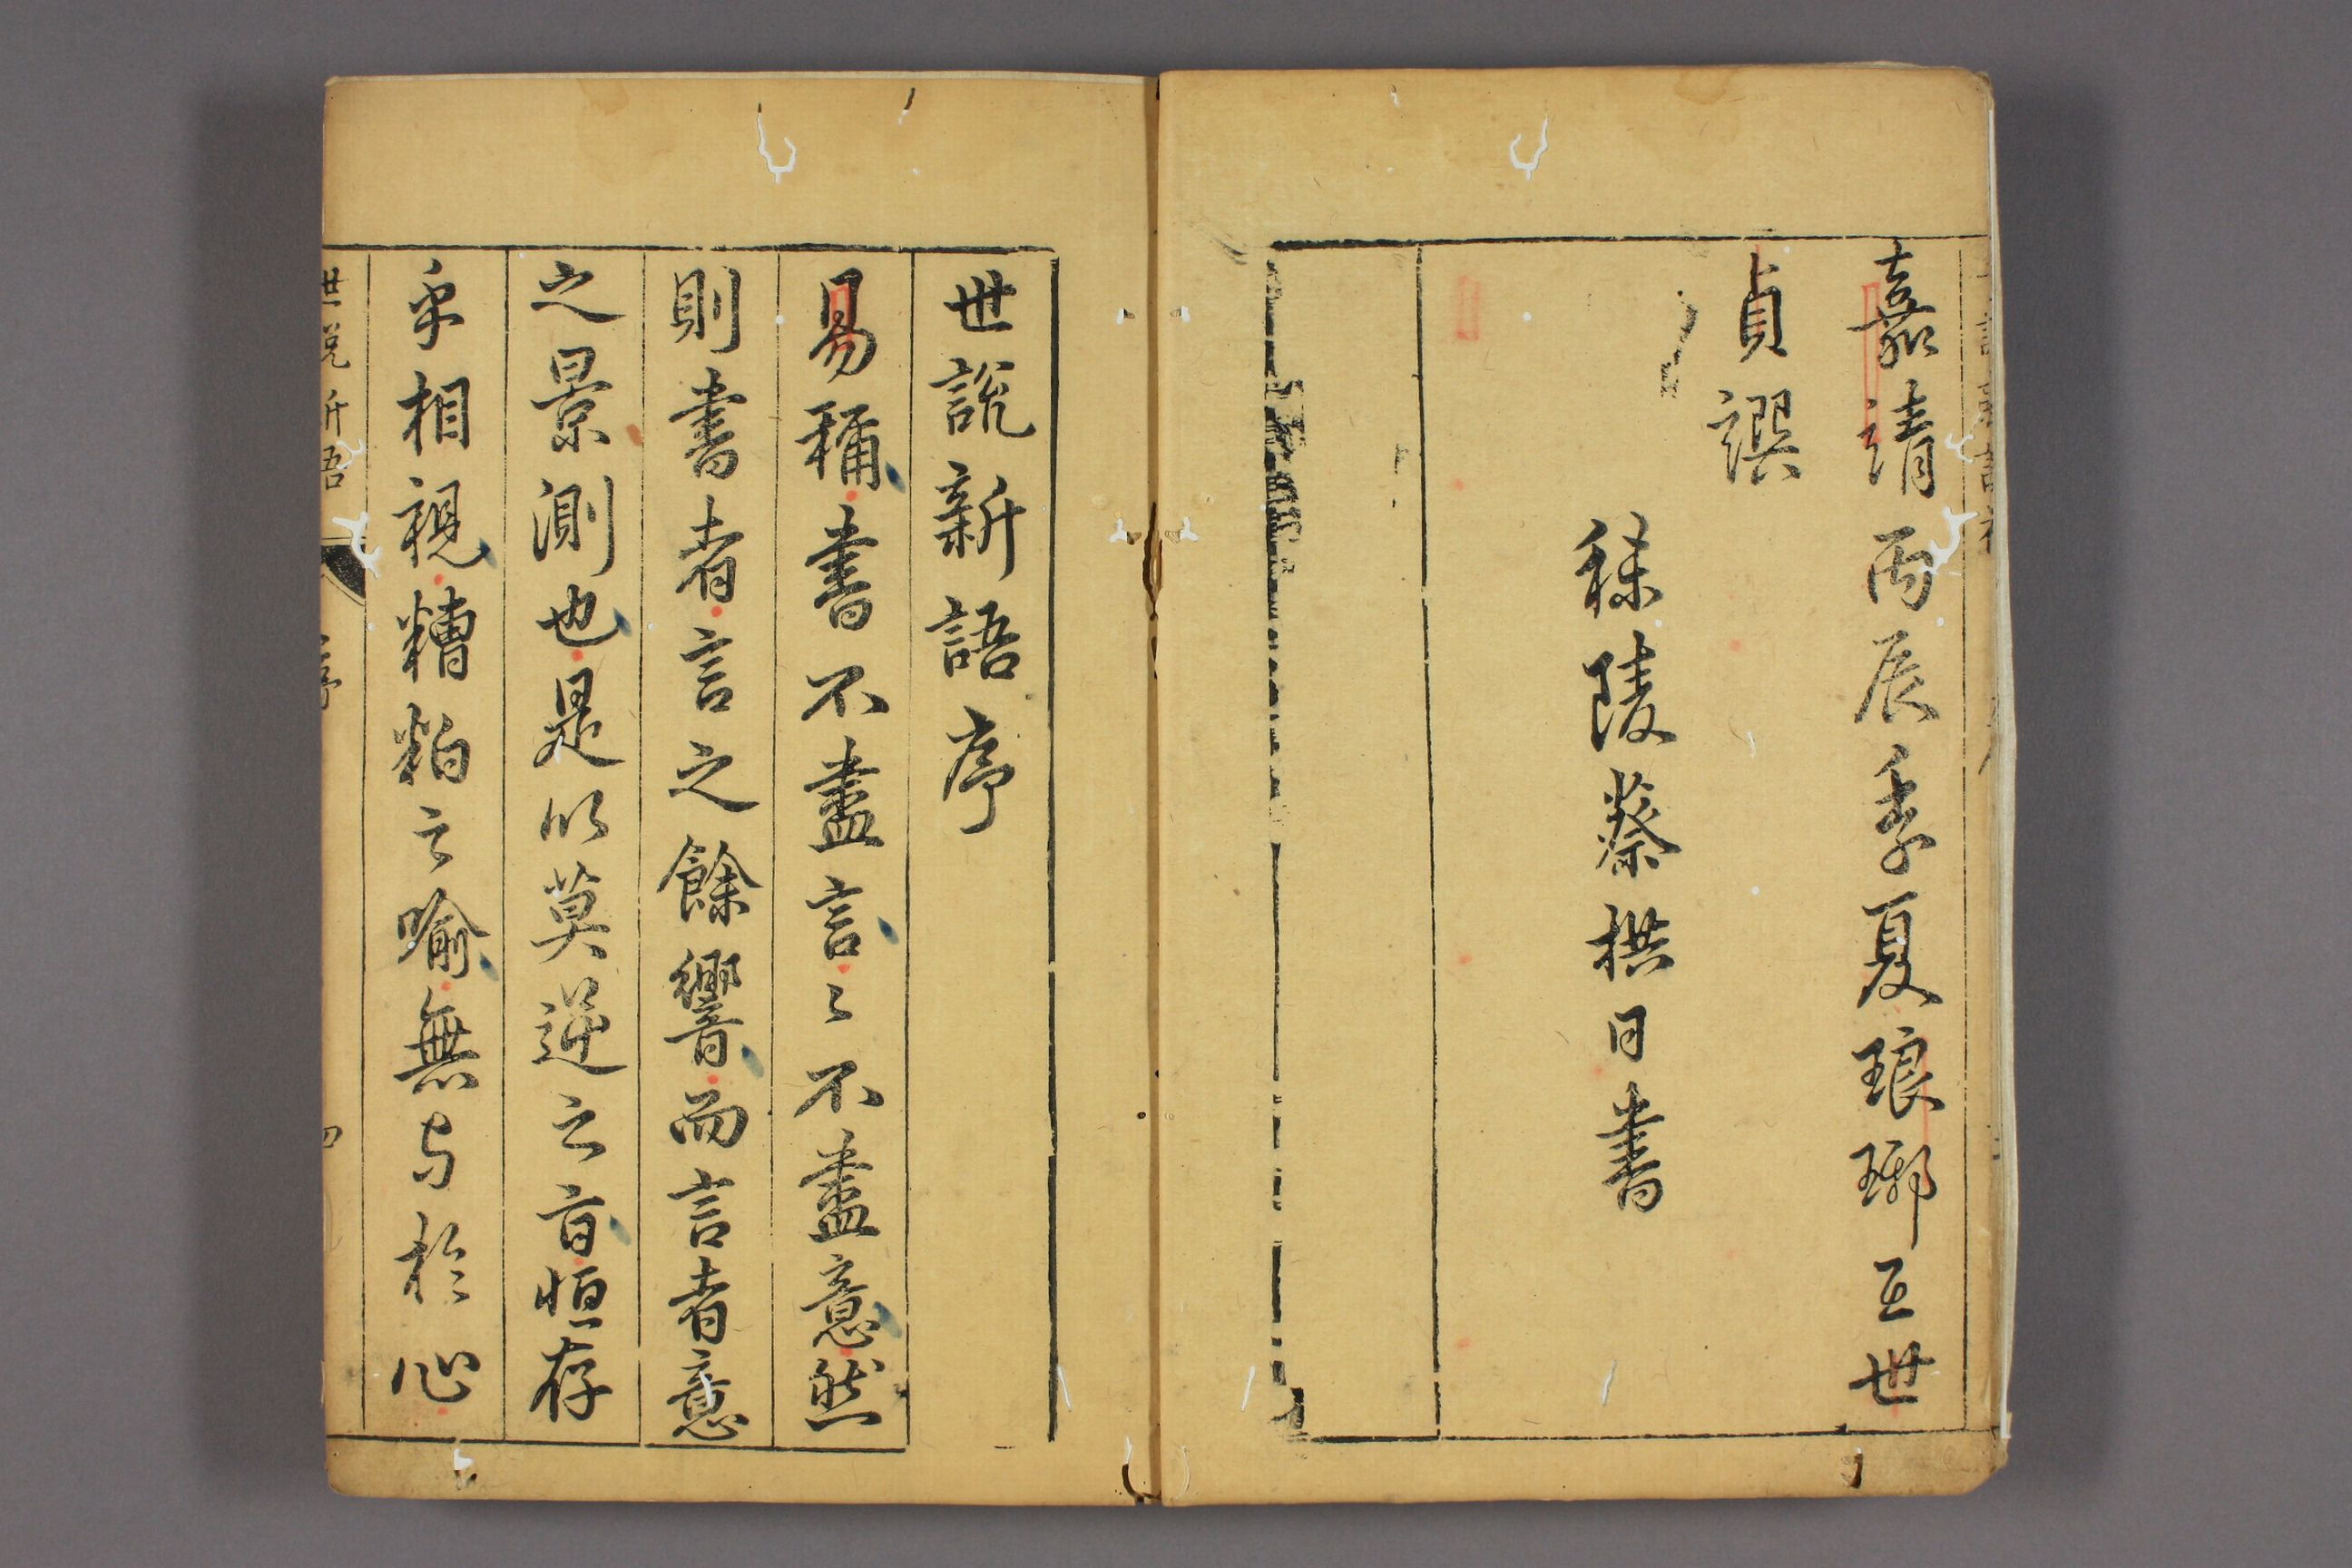 嘉靖丙辰季夏琅琊王世
貞譔
秣陵蔡拱日書
世說新語序
易稱書不盡言〻不盡意然
則書者言之餘響而言者意
之景測也是以莫逆之旨恒存
乎相視糟粕之喻無与於心
世說新語 序 四